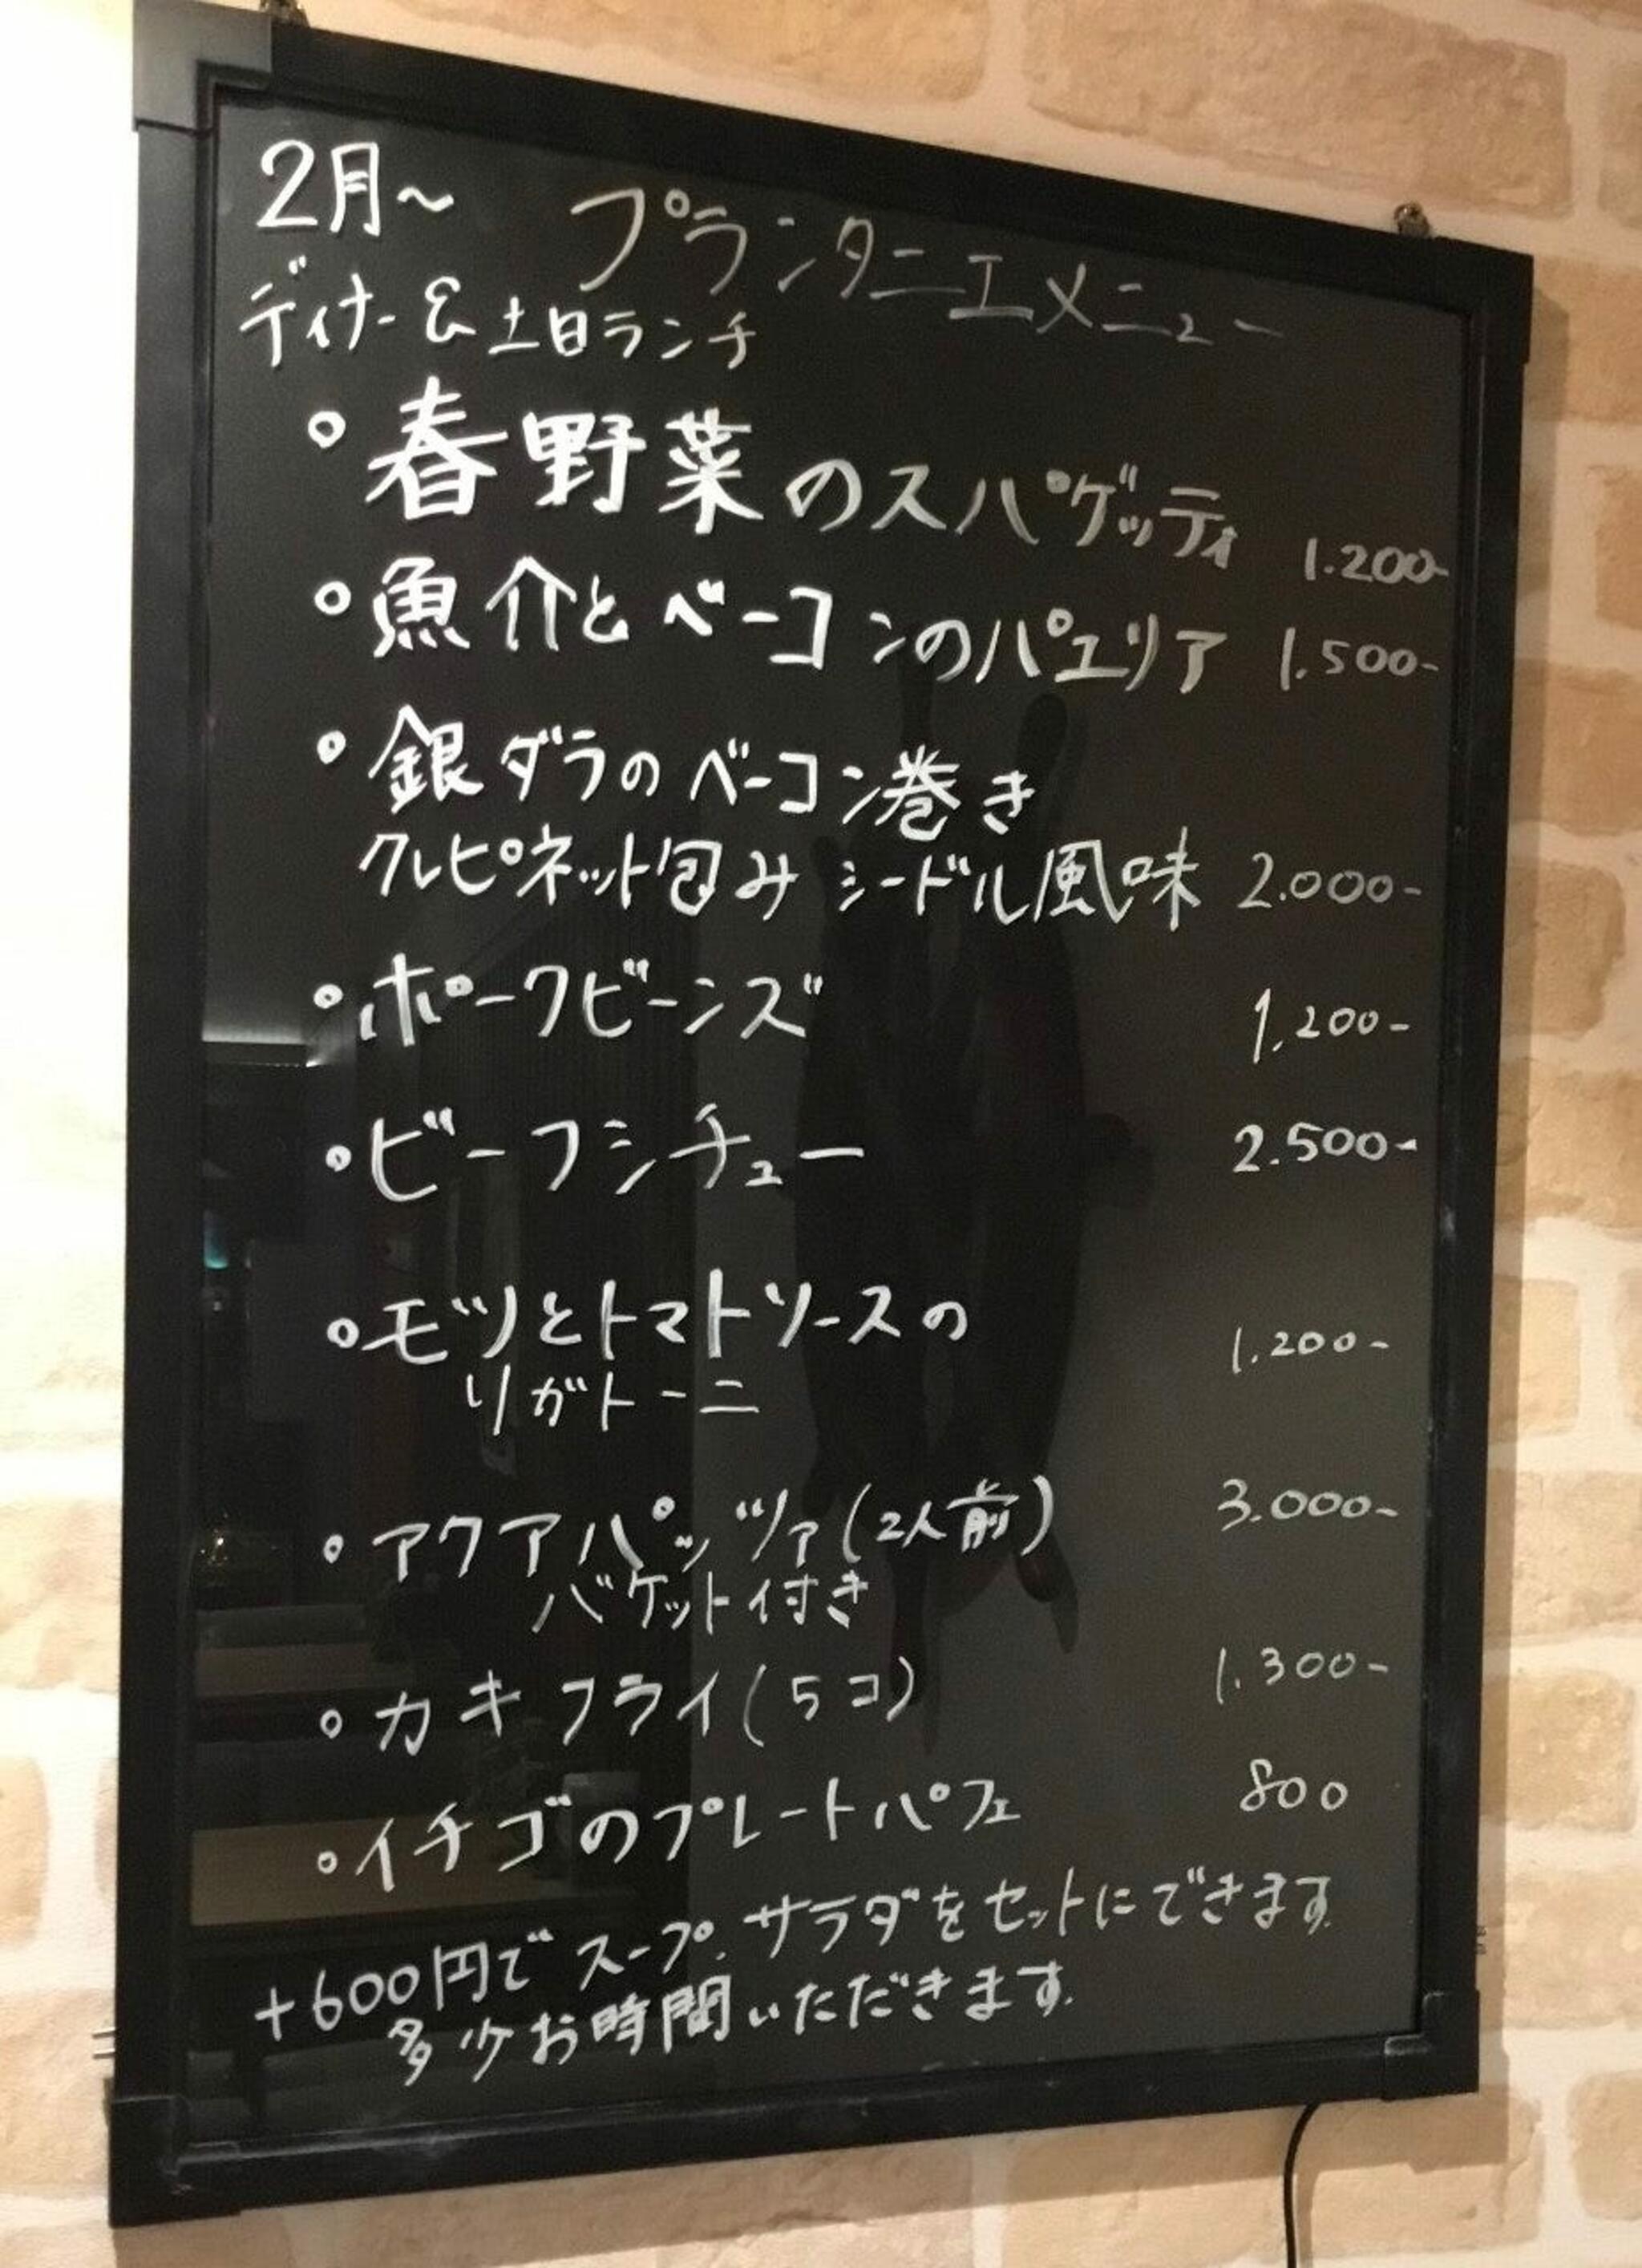 2月～ プランタニエメニュー
ディナー&土日ランチ
○春野菜のスパゲッティ 1.200-
○魚介とベーコンのパエリア 1.500-
○銀ダラのベーコン巻き
クレピネット包み シードル風味 2.000-
○ポークビーンズ 1.200-
○ビーフシチュー 2.500-
○モツとトマトソースの 1.200-
リガトーニ
○アクアパッツァ(2人前) 3.000-
バケット付き
○カキフライ(5コ) 1.300-
○イチゴのプレートパフェ 800
+600円でスープ.サラダをセットにできます.
多少お時間いただきます.